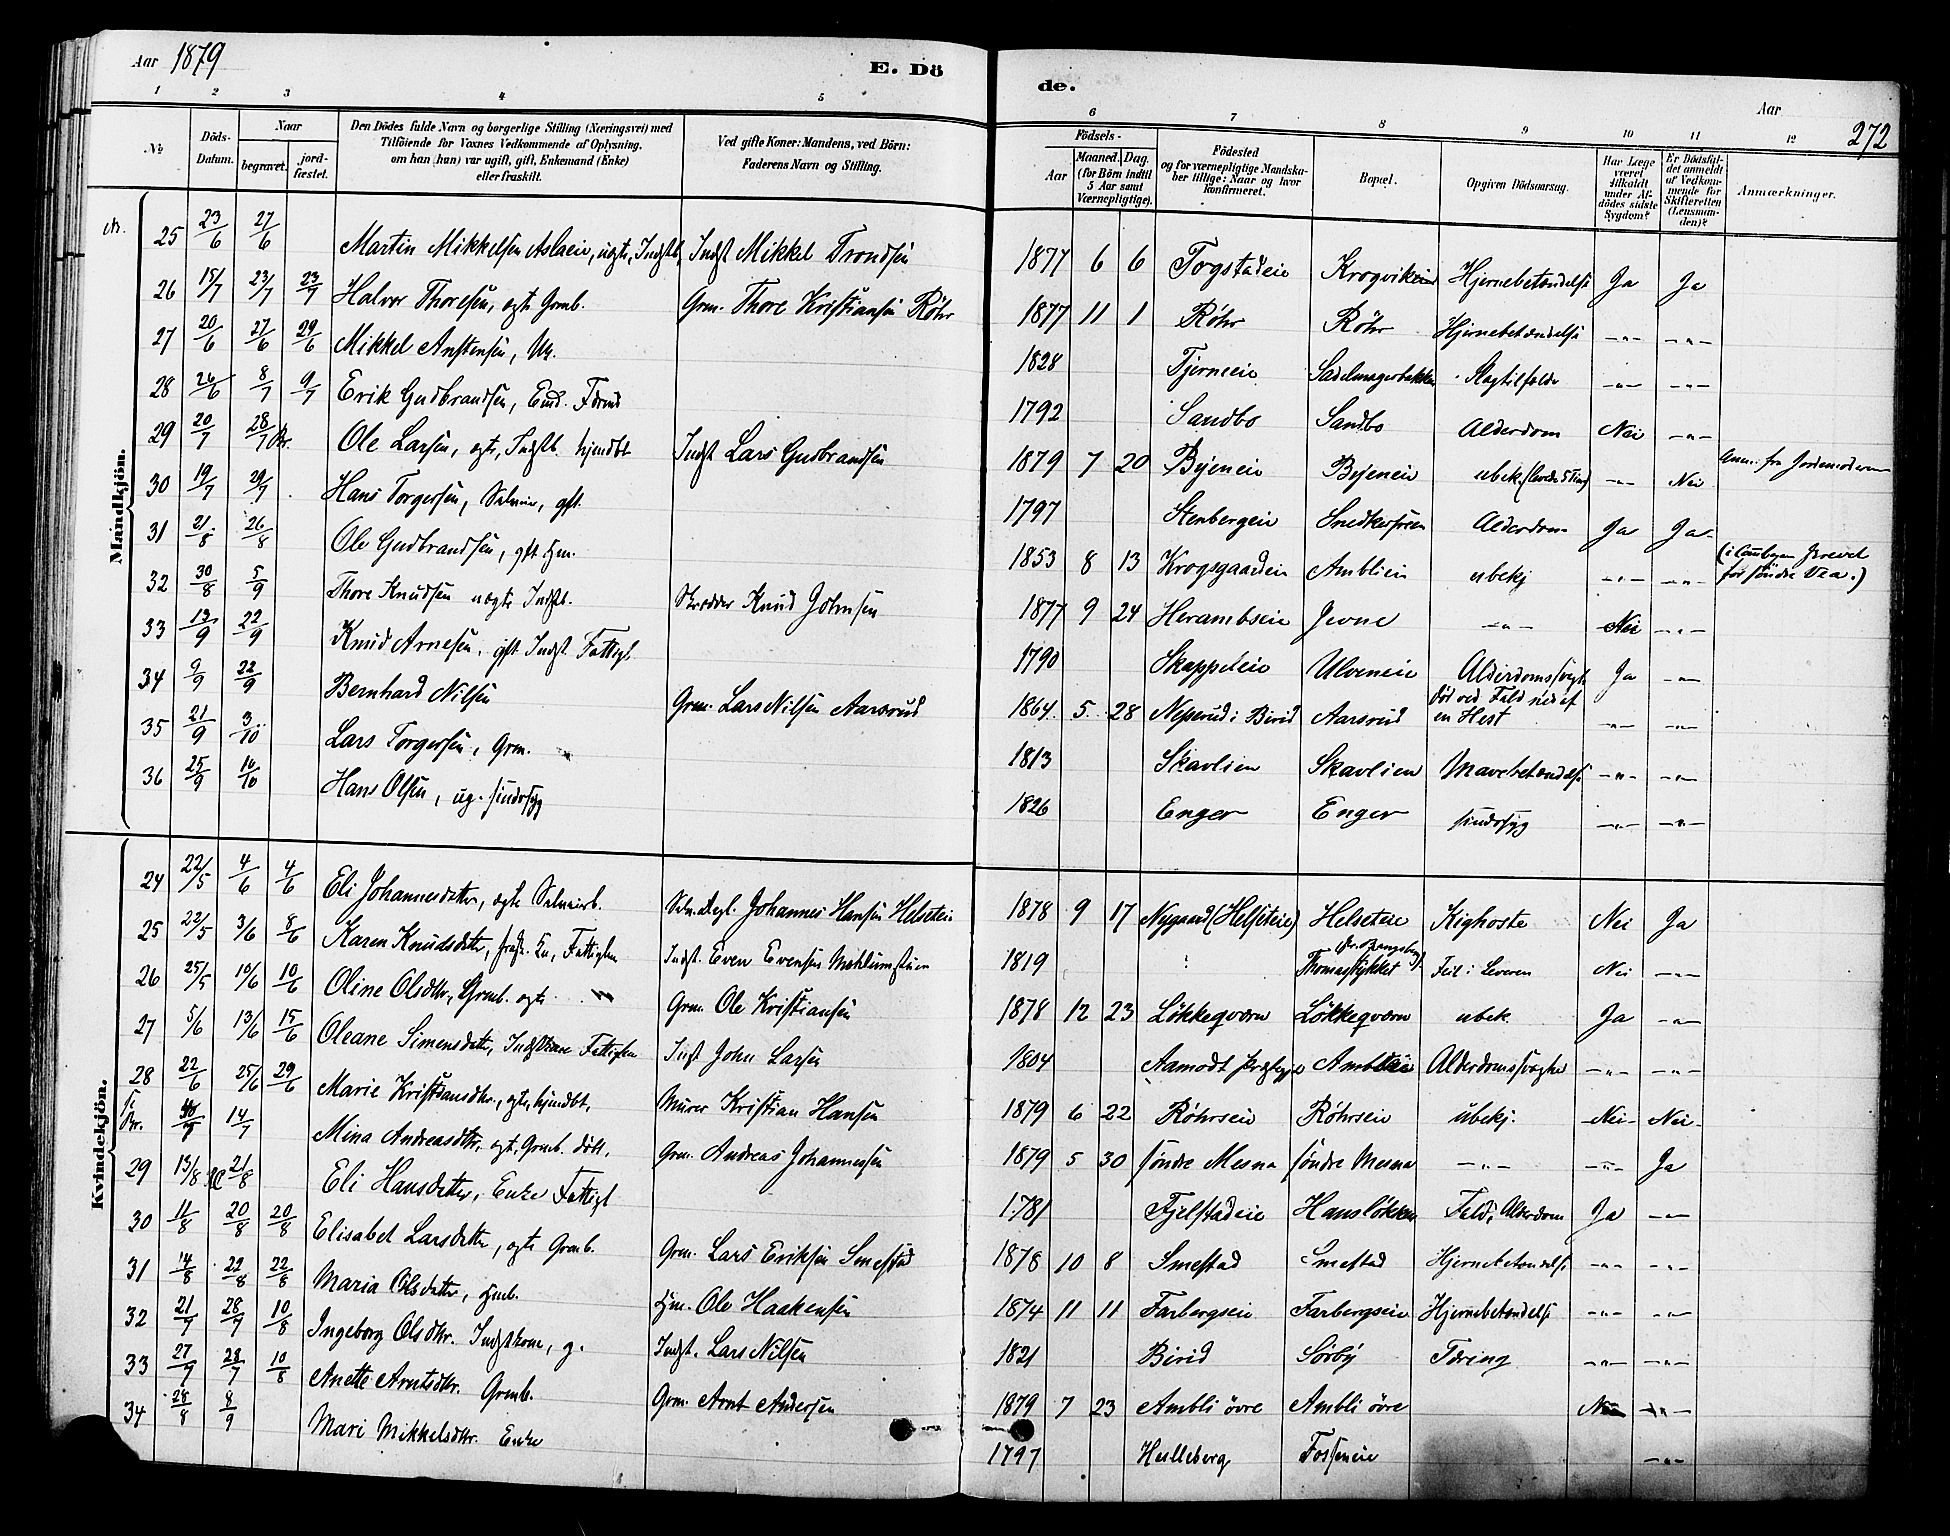 Aar 1879
E. Dö
de.
Aar
272
1 2 3 4 5 6 7 8 9 10 11 12
No
Döds-Datum.
Naar
begravet. jord-fæstet.
Den Dödes fulde Navn og borgerlige Stilling (Næringsvei) med
Tilföiende for Voxnes Vedkommende af Oplysning.
om han (hun) var ugift, gift, Enkemand (Enke)
eller fraskilt.
Ved gifte Koner: Mandens, ved Börn:
Faderens Navn og Stilling.
Födsels-
Aar Maaned. Dag.
(for Börn indtil
5 Aar samt
Værnepligtige).
Födested
og for værnepligtige Mandska-
ber tillige: Naar og hvor
konfirmeret.
Bopæl.
Opgiven Dödsaarsag.
Har Læge
været
tilkaldt
under Af-
dödes sidste
Sygdom?
Er Dödsfal-
det anmeldt
af Vedkom-
mende for
Skifteretten
(Lensman-
den)?
Anmærkninger.
Mandkjön.
25 23/6 27/6 Martin Mikkelsen Aslaeie, uægte, Indstb, Indst Mikkel Trondsen 1877 6 6 Togstadeie Krogvikeie Hjernebetændelse Ja Ja
26 15/7 23/7 23/7 Halvor Thoresen, ægte Grmb. Grm. Thore Kristiansen Röhr 1877 11 1 Röhr Röhr Hjernebetændelse -"- -"-
27 20/6 27/6 29/6 Mikkel Anstensen, 1828 Tjerneeie Sadelmagerbakken Slagtilfælde -"- -"-
28 26/6 8/7 9/7 Erik Gudbrandsen, 1792 Sandbo Sandbo Alderdom Nei -"-
29 20/7 28/7 Ole Larsen, ægte, Indstb. hjemdbt Indst Lars Gudbrandsen 1879 7 20 Byeneie Byeneie ubek. (levede 5 Tim) -"- Nei Anm. fra Jordemoderen
30 19/7 29/7 Hans Torgersen, Selveier, gft. 1797 Stenbergeie Alderdom Ja Ja
31 21/8 26/8 Ole Gudbrandsen, gft Hm. 1853 8 13 Krogsgaardeie Amblien ubekj -"- -"- for söndre Vea.)
32 30/8 5/9 Thore Knudsen uægte Indstb. Skrædder Knud Johnsen 1877 9 24 Herambseie Jevne -"- Nei -"-
33 13/9 22/9 Knud Arnesen, gft Indst. Fattigl. 1790 Skappeleie Ulveneie Alderdomssvagh. Ja -"-
34 9/9 22/9 Bernhard Nilsen Grm. Lars Nilsen Aarsrud 1864 5 28 Neperud i Birid Aarsrud Död ved Fald ned af en Hest -"- -"-
35 21/9 3/10 Lars Torgersen, Grm. 1813 Skavlien Skavlien Mavebetændelse -"- -"-
36 25/9 10/10 Hans Olsen, ug. sindssyg 1826 Enger Enger sindssyg -"- -"-
Kvindekjön.
24 22/5 4/6 4/6 Eli Johannesdatter, ægte Selveierb. Johannes Hansen Helseteie 1878 9 17 Nygaard (Helseteie) Helseteie Kighoste Nei Ja
25 22/5 3/6 8/6 Karen Knudsdatter, Fattiglem Indst. Even Evensen Mæhlumstuen 1819 Thomasstykket Feil i Leveren Nei -"-
26 25/5 10/6 10/6 Oline Olsdtr, Grmb. ægte Grm. Ole Kristiansen 1878 12 23 Lökkeqværn Lökkeqværn ubek. Ja -"-
27 5/6 13/6 15/6 Oleane Simensdatter, Indstkone Fattiglem Indst John Larsen 1804 Aamodt Præstegj Ambleie Alderdomssvaghed -"- -"-
28 22/6 25/6 29/6 Marie Kristiansdtr., ægte, hjemdbt, Murer Kristian Hansen 1879 6 22 Röhrseie Röhrseie ubekj. Nei Nei
14/7 Mina Andreasdtr. ægt, Grmb. Grm. Andreas Johannessen 1879 5 30 söndre Mesna söndre Mesna -"- -"- Ja
29 13/8 21/8 Eli Hansdatter, Enke Fattigl 1781 Fjelstadeie Hanslökken Fald, Alderdom Ja -"-
30 11/8 20/8 20/8 Elisabet Larsdatter, ægte Grmb. Grm. Lars Eriksen Smestad 1878 10 8 Smestad Smestad Hjernebetændelse -"- -"-
31 14/8 22/8 22/8 Maria Olsdatter, Hmb. Hm. Ole Haakensen 1874 11 11 Farbergseie Farbergseie Hjernebetændelse -"- -"-
32 21/7 28/7 10/8 Ingeborg Olsdtr. Indstkone, g. Indst. Lars Nilsen 1821 Birid Sörby Tæring -"- -"-
33 27/7 28/7 10/8 Anette Arntsdtr. Grmb. Grm. Arnt Andersen 1879 7 23 Ambli övre Ambli övre Nei -"-
34 28/8 8/9 Mari Mikkelsdtr. Enke 1797 Hulleberg Fosseneie -"-